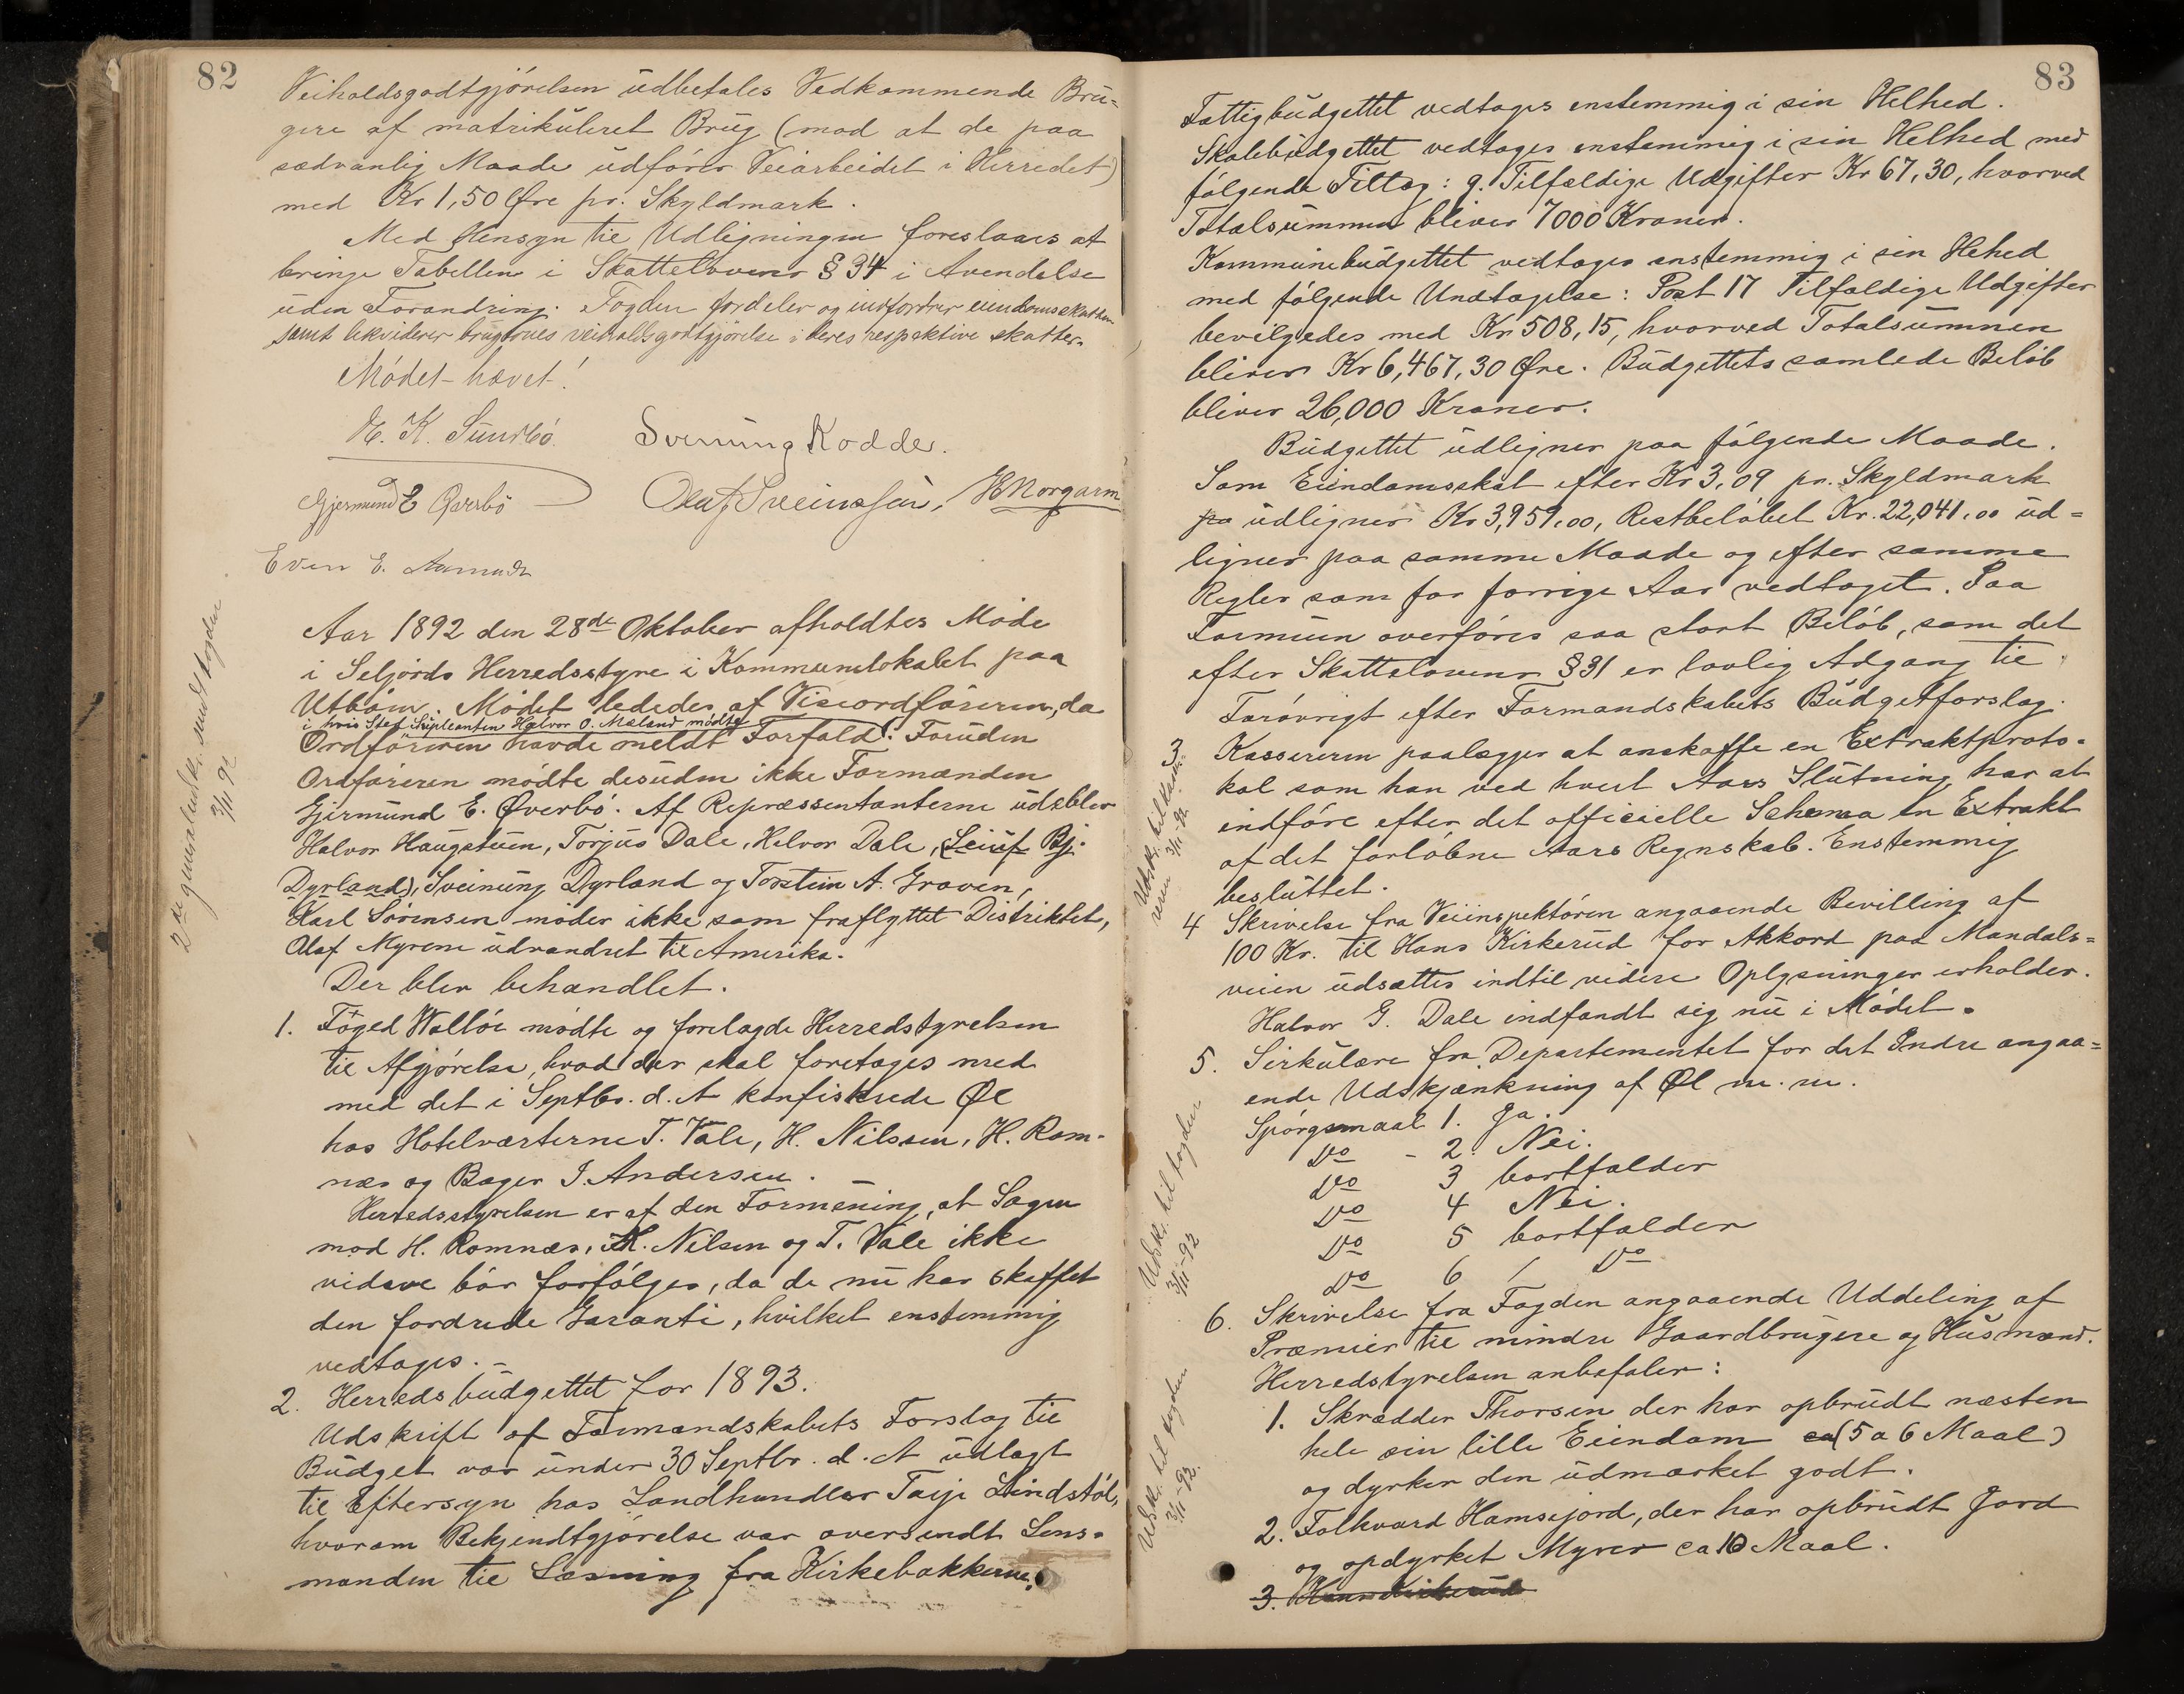 82
Veiholdsgodtgjórelsen udbetales Vedkommende Bru-
gere af matrikuleret Brug (mod at de paa
sædvanlig Maade udfórer Veiarbeidet i Herredet)
med Kr 1,50 Øre pr. Skyldmark.
Med Hensyn til Udligningen foreslaaes at
bringe Tabellen i Skattelovens § 34 i Anvendelse
uden Forandring. Fogden fordeler og indfordrer eiendomsskatten
samt likviderer brugernes veiholdsgodtgjórelse i deres respektive skatter.
Módet hævet!
E. K. Sundbó. Svenung Kodder.
Gjermund E Øverbó Olaf Sveinssön, H Norgarm
Even E. Aamodt
Aar 1892 den 28de Oktober afholdtes Móde
i Seljords Herredsstyre i Kommunelokalet paa
Utbóen. Módet lededes af Viceordfóreren, da
i hvis Sted Supleanten Halvor O. Mæland mødte
Ordfóreren havde meldt Forfald. Foruden
Ordfóreren módte desuden ikke Formanden
Gjermund E. Øverbó. Af Repræssentanterne udeblev
Halvor Haugstuen, Torjus Dale, Helvor Dale, (Leiuf Bj.
Dyrland), Sveinung Dyrland og Torstein A. Graven,
Karl Sörensen móder ikke som fraflyttet Distriktet,
Olaf Myrene udvandret til Amerika.
Der blev behandlet.
1. Foged Wallóe módte og forelagde Herredstyrelsen
til Afgjórelse, hvad der skal foretages med
med det i Septbr. d. A konfiskerede Øl
hos Hotelværterne T. Vale, H. Nilssen, H. Rom-
næs og Bager I. Andersen.
Herredsstyrelsen er af den Formening, at Sagen
mod H. Romnæs, H. Nilsen og T. Vale ikke
videre bór forfólges, da de nu har skaffet
den fordrede Garanti, hvilket enstemmig
vedtages. -
2. Herredsbudgettet for 1893.
Udskrift af Formandskabets Forslag til
Budget var under 30 Septbr. d. A udlagt
til Eftersyn hos Landhandler Taije Lindstól,
hvorom Bekjendtgjórelse var oversendt Lens-
manden til Læsning fra Kirkebakkerne.
2 de genpartudsk. sendt fogden
3/11 92
83
Fattigbudgettet vedtages enstemmig i sin Helhed.
Skolebudgettet vedtages enstemmig i sin Helhed med
fólgende Tillæg: 9. Tilfældige Udgifter Kr 67,30, hvorved
Totalsummen bliver 7000 Kroner.
Kommunebudgettet vedtages enstemmig i sin Hehed
med fólgende Undtagelse: Post 17 Tilfældige Udgifter
bevilgedes med Kr 508,15, hvorved Totalsummen
bliver Kr 6,467,30 Øre. Budgettets samlede Belób
bliver 26,000 Kroner.
Budgettet udlignes paa fólgende Maade.
Som Eiendomsskat efter Kr 3,09 pr. Skyldmark
pr udlignes Kr 3,959,00, Restbelóbet Kr. 22,041,00 ud-
lignes paa samme Maade og efter samme
Regler som for forrige Aar vedtaget. Paa
Formuen overfóres saa stort Belób, som det
efter Skattelovens § 31 er lovlig Adgang til.
Foróvrigt efter Formandskabets Budgetforslag.
3 Kassereren paalægges at anskaffe en Extraktproto-
kol som han ved hvert Aars Slutning har at
indfóre efter det officielle Schema en Extrakt
af det forlóbne Aars Regnskab. Enstemmig
besluttet.
4 Skrivelse fra Veiinspektóren angaaende Bevilling af
100 Kr. til Hans Kirkerud for Akkord paa Mandals-
veien udsættes indtil videre Oplysninger erholdes.
Halvor G. Dale indfandt sig nu i Módet.
5. Sirkulære fra Departementet for det Indre angaa-
ende Udskjænkning af Øl m. m.
Spórgsmaal 1. Ja.
Do - 2. Nei.
Do 3 bortfalder
Do 4 Nei.
Do 5 bortfalder
Do 6 / Do
6. Skrivelse fra Fogden angaaende Uddeling af
Præmier til mindre Gaardbrugere og Husmænd.
Herredstyrelsen anbefaler:
1. Skrædder Thorsen der har opbrudt næsten
hele sin lille Eiendom ca (5 a 6 Maal)
og dyrker den udmærket godt.
2. Folkvard Hamsejord, der har opbrudt Jord
og opdyrket Myrer ca 10 Maal.
3. Hans Kirkerud
Udsk. til Kasse-
reren 3/11-92.
Udskr. til fogden
3/11-92
Udskr. til fogden
3/11-92.